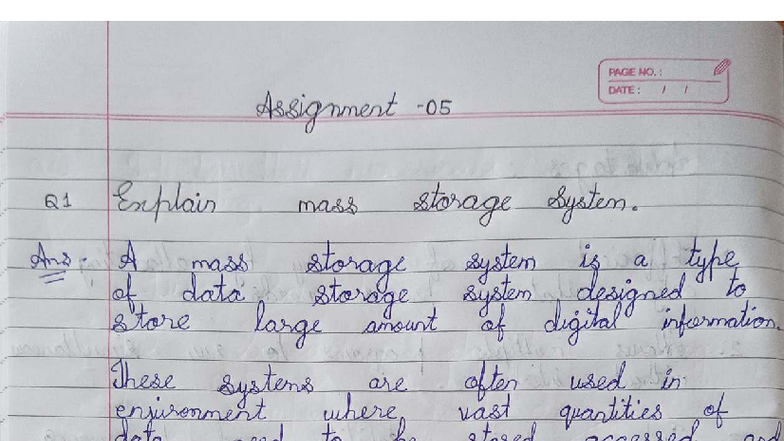 PAGE NO. :
DATE : / /
Assignment -05
Q1 Explain mass storage system.
Ans - A mass storage system is a type
of data storage system designed to
store large amount of digital information.
These systems are often used in
enjironment where vast quantities of
data need to be stored accessed and